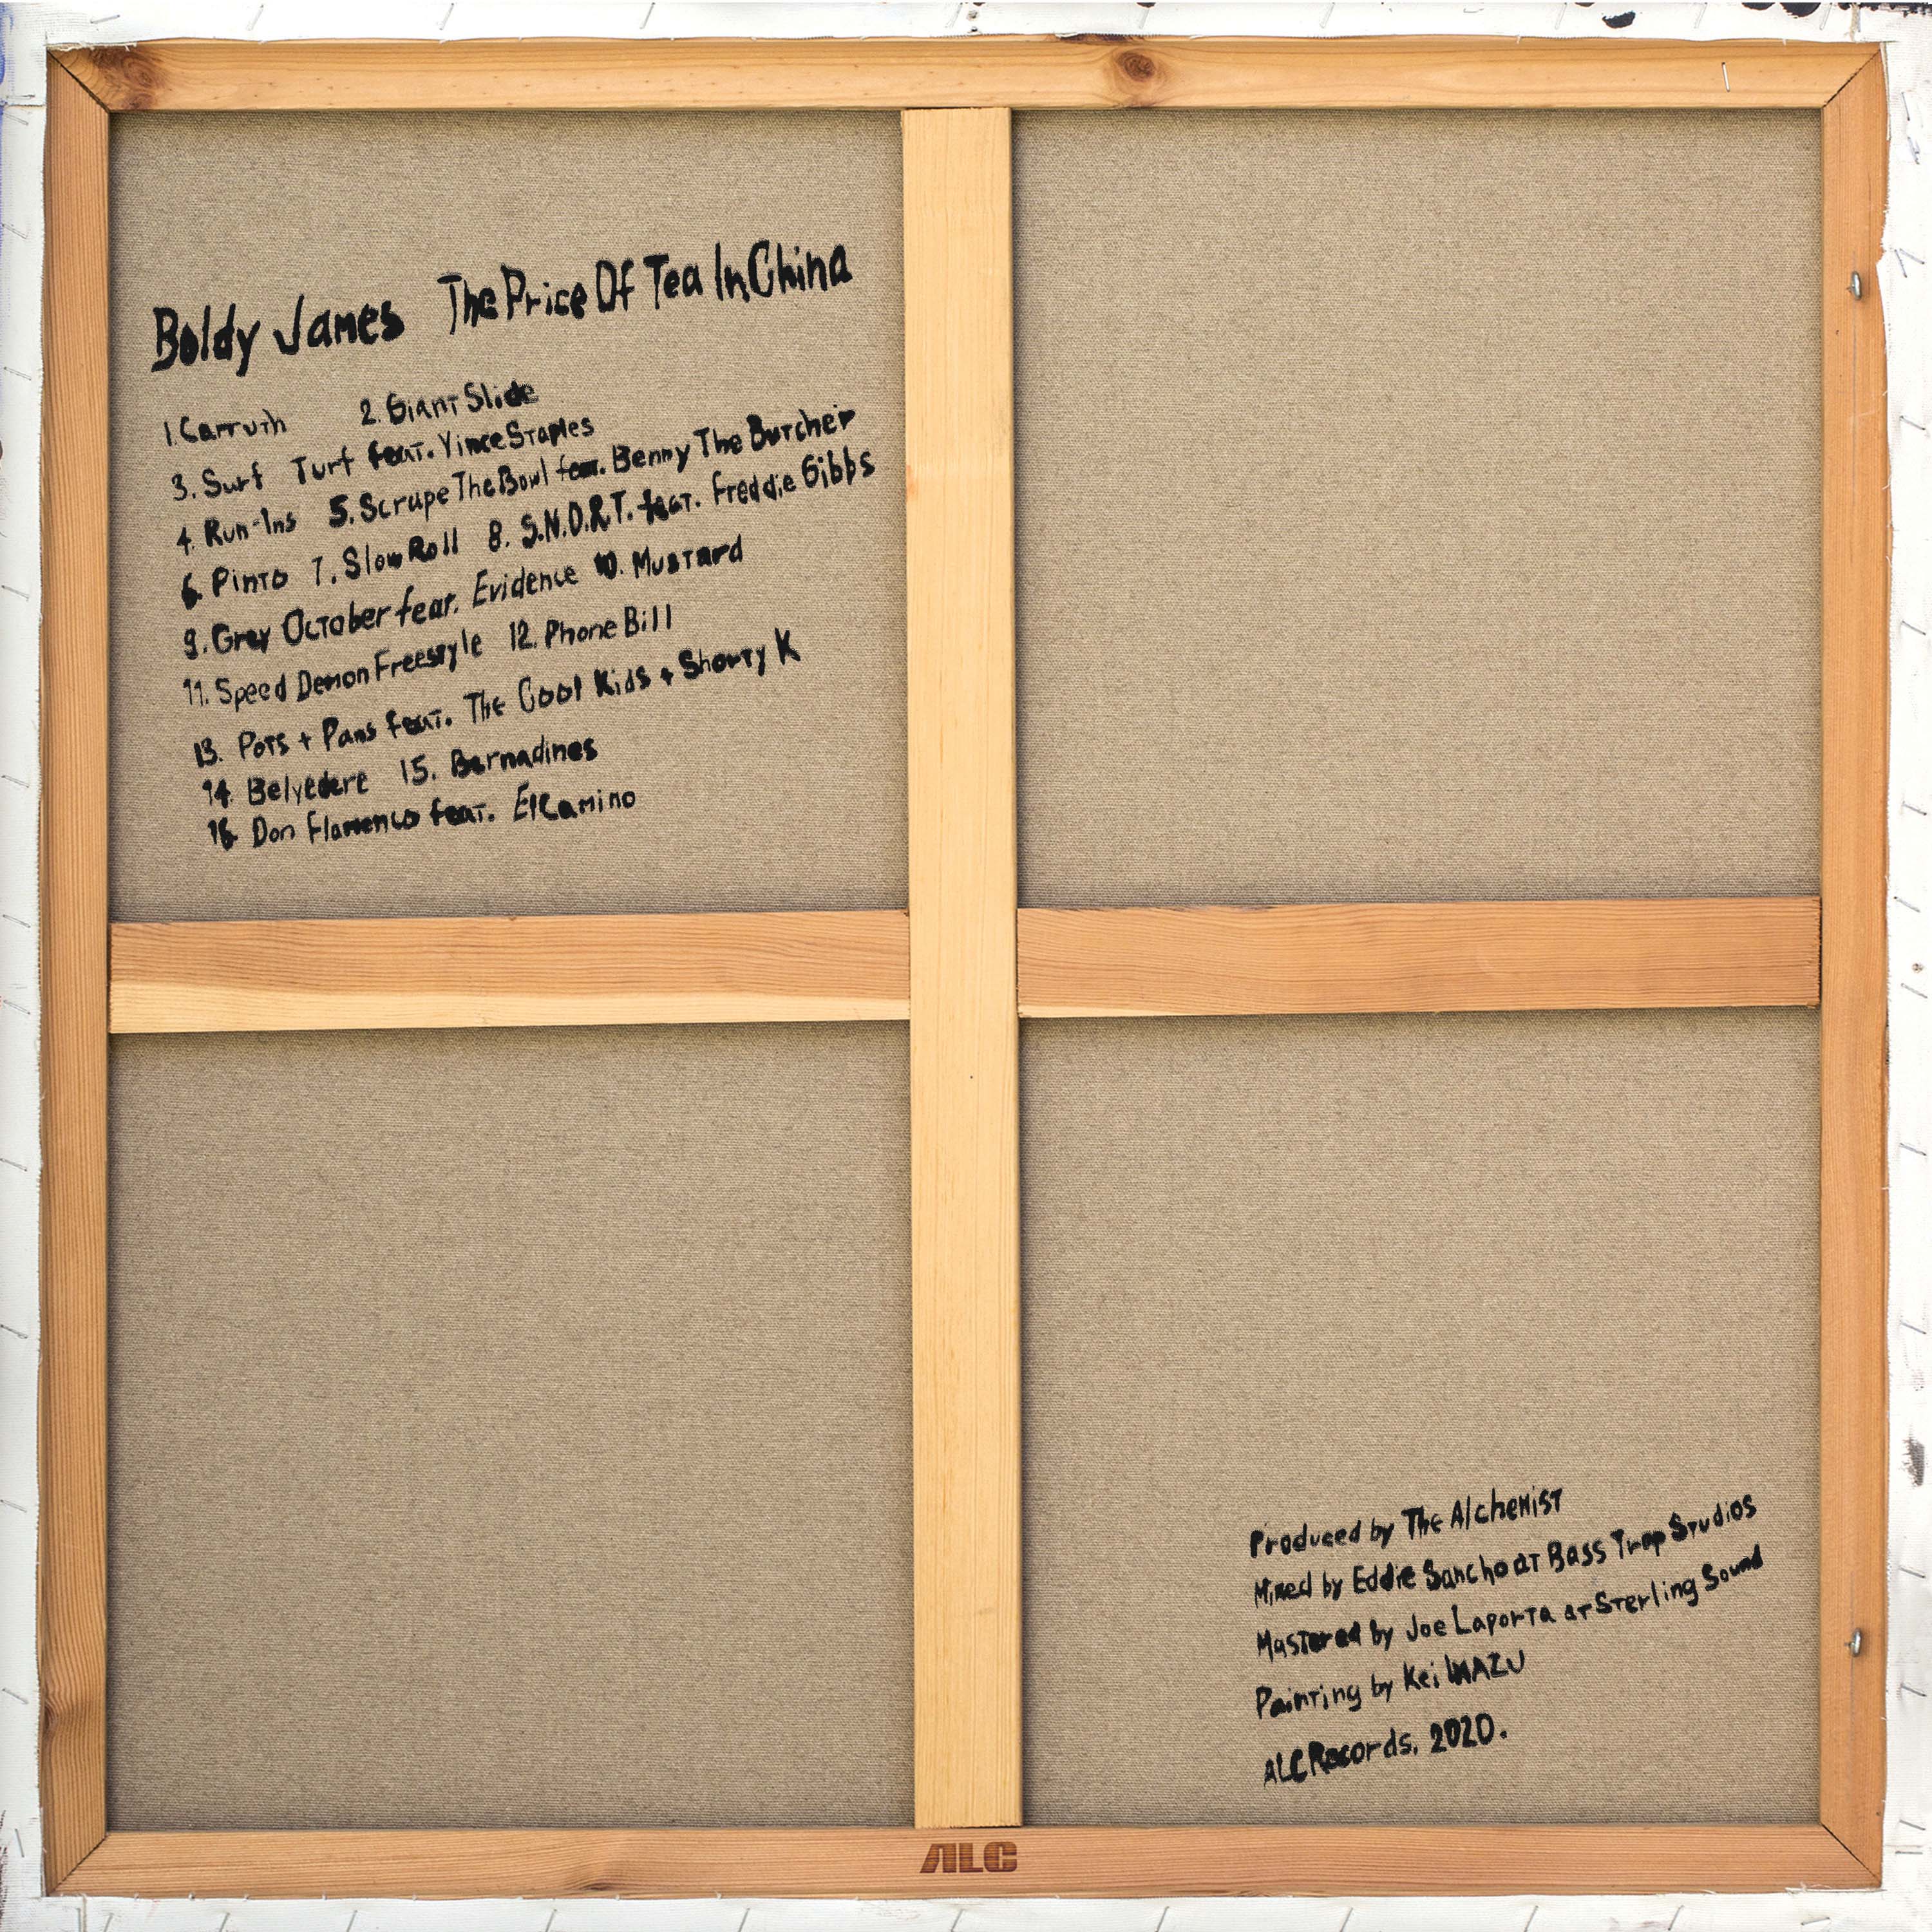 Boldy James The Price Of Tea In China
1. Carruth 2. Giant Slide
3. Surf Turf feat. Vince Staples
4. Run-Ins 5. Scrape The Bowl feat. Benny The Butcher
6. Pinto 7. Slow Roll 8. S.N.O.R.T. feat. Freddie Gibbs
9. Grey October feat. Evidence 10. Mustard
11. Speed Demon Freestyle 12. Phone Bill
13. Pots + Pans feat. The Cool Kids + Shorty K
14. Belvedere 15. Bernadines
16. Don Flamenco feat. ElCamino
Produced by The Alchemist
Mixed by Eddie Sancho at Bass Trap Studios
Mastered by Joe Laporta at Sterling Sound
Painting by Kei IMAZU
ALC Records, 2020.
ALC